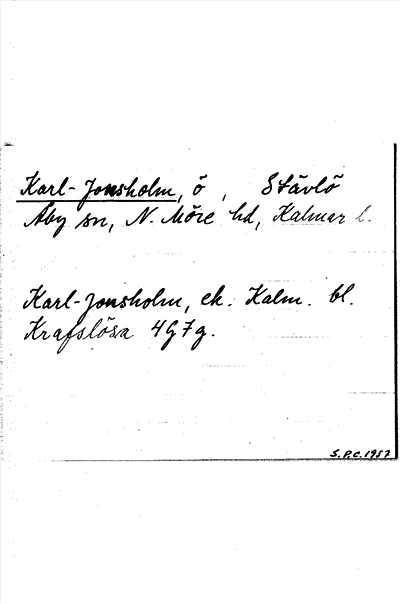 Karl-Jonsholm, ö, Stävlö
Åby sn, N. Möre hd, Kalmar l.
Karl-Jonsholm, ek. Kalm. bl.
Krafslösa 4G7g.
S.P.C. 1957